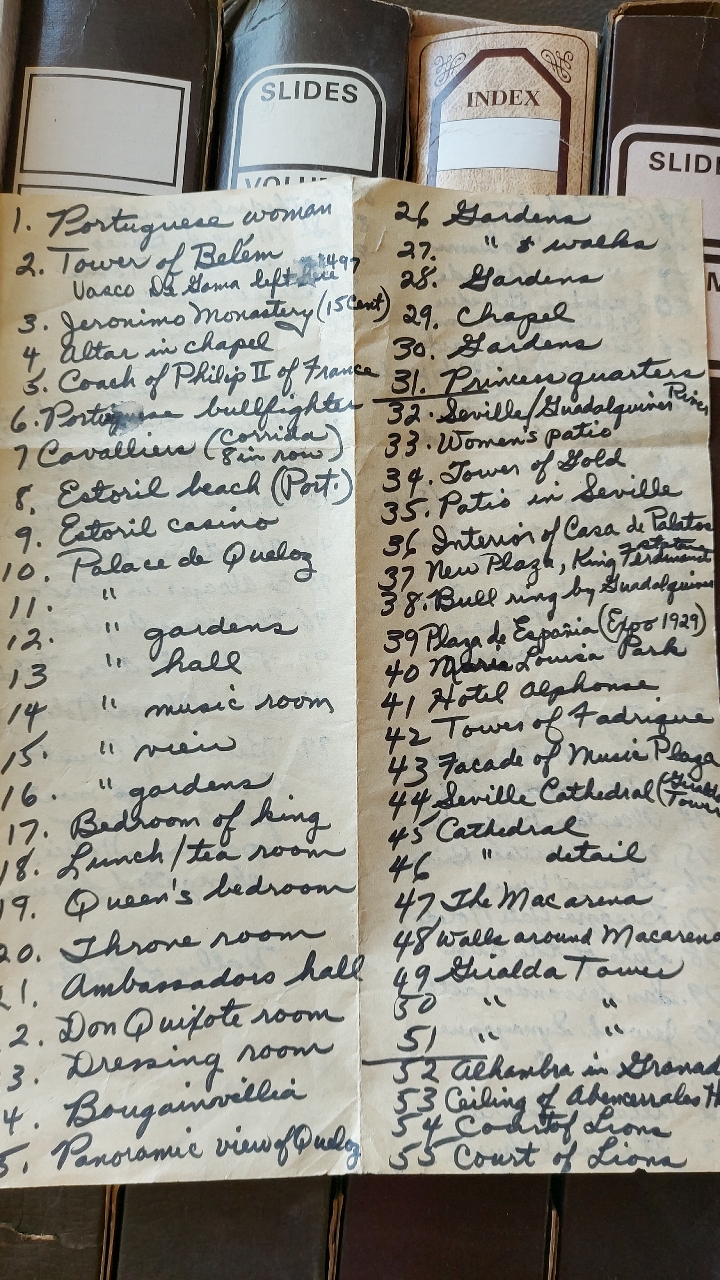 SLIDES
VOLUM
INDEX
SLID
M
1. Portuguese woman
2. Tower of Belém
Vasco Da Gama left here 1497
3. Jeronimo Monastery (15 Cent)
4 Altar in chapel
5. Coach of Philip II of France
6. Portuguese bullfighter
7 Cavalliers (Corrida
8 in row)
8. Estoril beach (Port.)
9. Estoril casino
10. Palace de Queloz
11. "
12. " gardens
13 " hall
14 " music room
15. " view
16. " gardens
17. Bedroom of king
18. Lunch/tea room
19. Queen's bedroom
20. Throne room
21. Ambassadors hall
2. Don Quixote room
3. Dressing room
4. Bougainvillia
5. Panoramic view of Queloz
26 Gardens
27. " & walks
28. Gardens
29. Chapel
30. Gardens
31. Princess quarters
32. Seville/Guadalquiver River
33. Women's patio
34. Tower of Gold
35. Patio in Seville
36 Interior of Casa de Palatos
37 New Plaza, King Ferdinand
38. Bull ring by Guadalquiver
39 Plaza de España (Expo 1929)
40 Maria Louisa Park
41 Hotel Alphonse
42 Tower of Fadrique
43 Facade of Music Plaza
44 Seville Cathedral (Giralda
Tower
45 Cathedral
46 " detail
47 The Macarena
48 Walls around Macarena
49 Giralda Tower
50 " "
51 " "
52 Alhambra in Granad
53 Ceiling of Abencerrales H
54 Court of Lions
55 Court of Lions